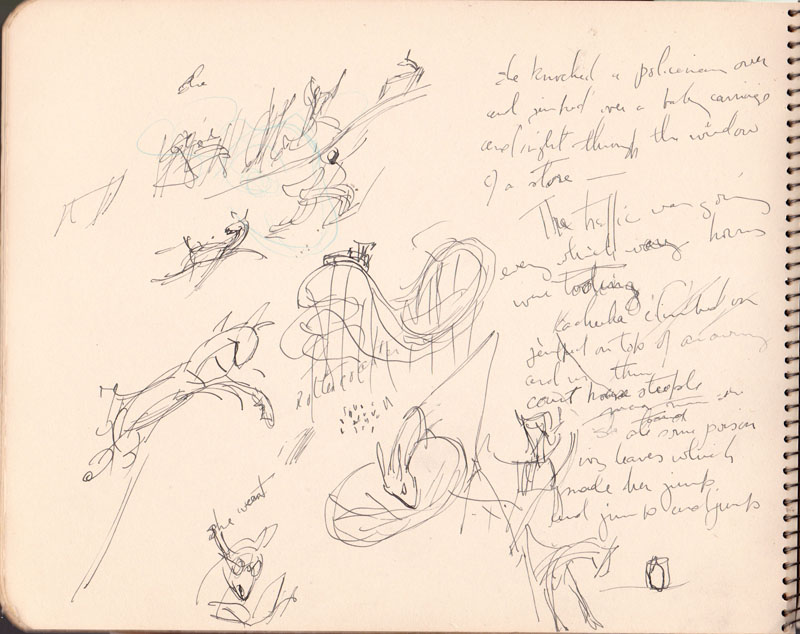 she
she knocked a policeman over
and jumped over a baby carriage
and right through the window
of a store —
The traffic was going
every which way horns
were tooting
Kachinka climbed on
jumped on top of a moving
and
court house steeple
she
ate some poison
ivy leaves which
made her jump
and jump and jump
Roller coaster
she went